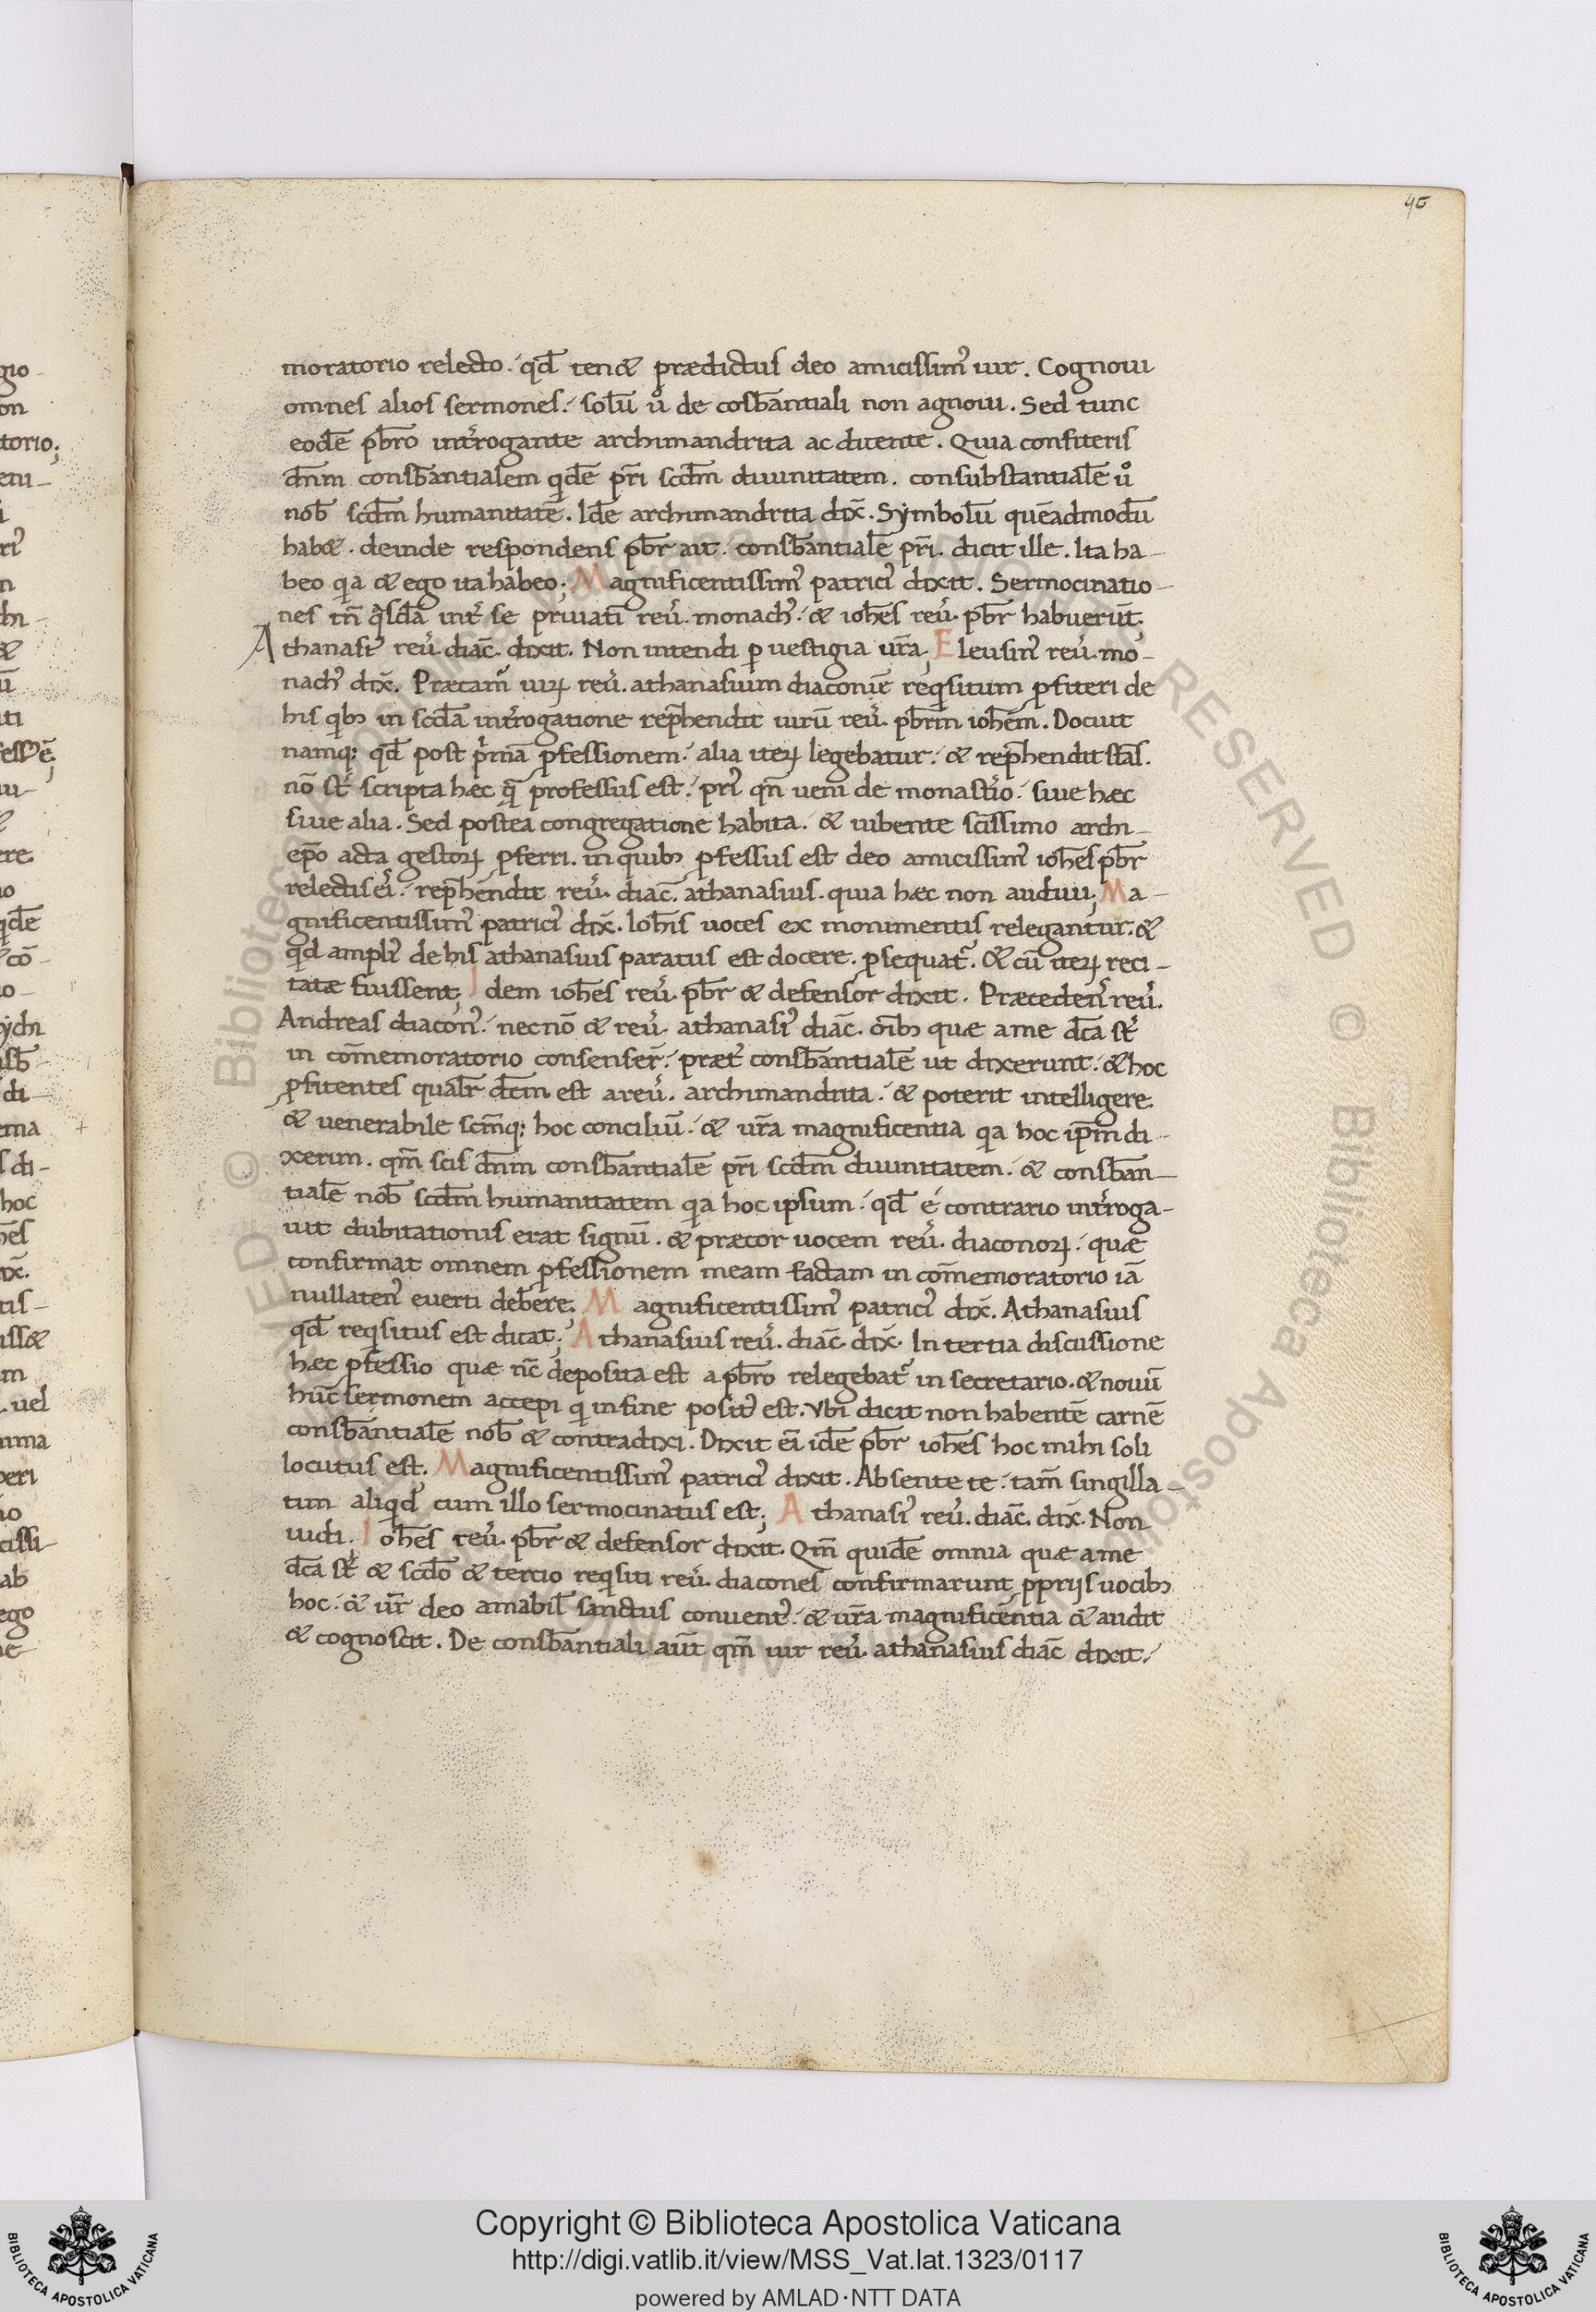 40
moratorio relecto. qd̄ tenet prædictus deo amicissim᾽ uir. Cognoui
omnes alios sermones. solū u̾ de cosb̄antiali non agnoui. Sed tunc
eodē pb̄ro int̾rogante archimandrita ac dicente. Quia confiteris
dn̄m consb̄antialem qidē pr̄i scd̄m diuinitatem. consubstantialē u̾
nob̄ scd̄m humanitatē. Idē archimandrita dix̄. Symbolū quēadmodū
habet. deinde respondens pb̄r ait. consb̄antialē pr̄i. dicit ille. Ita ha-
beo qia et ego ita habeo; Magnificentissim᾽ patrici᾽ dixit. Sermocinatio-
nes tn̄ qͣsdā int̾ se priuatī reu̾. monach᾽. et ioh̄es reu̾. pb̄r habuerūt;
Athanasi᾽ reu̾. diac̄. dixit. Non intendi p uestigia ur̄a; Eleusin᾽ reu̾. mo-
nach᾽ dix̄. Precam᾽ uiꝝ reu̾. athanasium diaconū reqisitum ꝓfiteri de
his qibꝫ in scd̄a int̾rogatione rep̄hendit uirū reu̾. pb̄rm ioh̄em. Docuit
namq; qd̄ post pͥmā ꝓfessionem. alia iteꝝ legebatur. et rep̄hendit stās.
nō st̾ scripta hæc qͣ professus est. pri᾽ qn̄ ueni de monast̾io. siue hæc
siue alia. Sed postea congregatione habita. et iubente scīssimo archi-
ep̄o acta gestoꝝ ꝓferri. in quibꝫ ꝓfessus est deo amicissim᾽ ioh̄es pb̄r
relectis ei᾽. rep̄hendit reu̾. diac̄. athanasius. quia hæc non audiui; Ma-
gnificentissim᾽ patrici᾽ dix̄. Ioh̄is uoces ex monimentis relegantur. et
qd ampli᾽ de his athanasius paratus est docere. ꝓsequat̾. Et cū iteꝝ reci-
tatæ fuissent; Idem ioh̄es reu̾. pb̄r et defensor dixit. Præceden̾ reu̾.
Andreas diacon᾽. necnō et reu̾. athanasi᾽ diac̄. oīb; quæ a me dc̄a st̾
in cōmemoratorio consenser̄. præt̾ consb̄antialē ut dixerunt. et hoc
ꝓfitentes qualr̄ dc̄m est a reu̾. archimandrita. et poterit intelligere.
et uenerabile sc̄mq; hoc conciliū. et ur̄a magnificentia qia hoc ip̄m di-
xerim. qm̄ scis dn̄m consb̄antialē pr̄i scd̄m diuinitatem. et consb̄an-
tialē nob̄ scd̄m humanitatem qia hoc ipsum. qd̄ é contrario int̾roga-
uit dubitationis erat signū. et precor uocem reu̾. diaconoꝝ. quæ
confirmat omnem ꝓfessionem meam factam in cōmemoratorio iā
nullaten᾽ euerti debere. Magnificentissim᾽ patrici᾽ dix̄. Athanasius
qd̄ reqisitus est dicat; Athanasius reu̾. diac̄. dix̄. In tertia discussione
hæc ꝓfessio quæ nc̄ deposita est a pb̄ro relegebat̾ in secretario. et nouū
hūc sermonem accepi qi in fine posit᾽ est. Vbi dicit non habentē carnē
consb̄antialē nob̄ et contradixi. Dixit ei᾽ idē pb̄r ioh̄es hoc mihi soli
locutus est. Magnificentissim᾽ patrici᾽ dixit. Absente te. tam̄ singilla-
tim aliqid cum illo sermocinatus est; Athanasi᾽ reu̾. diac̄. dix̄. Non
uidi; Ioh̄es reu̾. pb̄r et defensor dixit. Qm̄ quidē omnia quæ a me
dc̄a st̾ et scd̄o et tertio reqisiti reu̾. diacones confirmarunt ꝓprijs uocibꝫ
hoc. et ur̄ deo amabil̄ sanctus conuent᾽. et ur̄a magnificentia et audit
et cognoscit. De consb̄antiali aūt qm̄ uir reu̾. athanasius diac̄ dixit.
Copyright © Biblioteca Apostolica Vaticana
http://digi.vatlib.it/view/MSS_Vat.lat.1323/0117
powered by AMLAD·NTT DATA